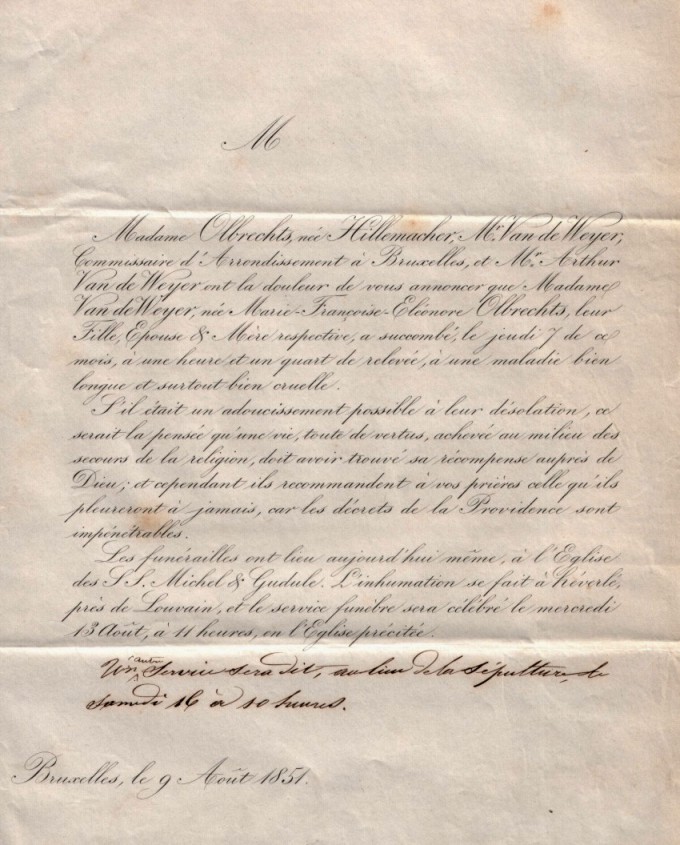 M
Madame Olbrechts, née Hillemacher, Mr. Van de Weyer,
Commissaire d'Arrondissement à Bruxelles, et Mr. Arthur
Van de Weyer ont la douleur de vous annoncer que Madame
Van de Weyer, née Marie-Françoise-Eléonore Olbrechts, leur
Fille, Epouse & Mère respective, a succombé, le jeudi 7 de ce
mois, à une heure et un quart de relevée, à une maladie bien
longue et surtout bien cruelle.
S'il était un adoucissement possible à leur désolation, ce
serait la pensée qu'une vie, toute de vertus, achevée au milieu des
secours de la religion, doit avoir trouvé sa récompense auprès de
Dieu; et cependant ils recommandent à vos prières celle qu'ils
pleureront à jamais, car les décrets de la Providence sont
impénétrables.
Les funérailles ont lieu aujourd'hui même, à l'Eglise
des S.S. Michel & Gudule. L'inhumation se fait à Héverlé,
près de Louvain, et le service funèbre sera célébré le mercredi
13 Août, à 11 heures, en l'Eglise précitée.
Un autre Service sera dit, au lieu de la Sépulture, le
samedi 16 à 10 heures.
Bruxelles, le 9 Août 1851.